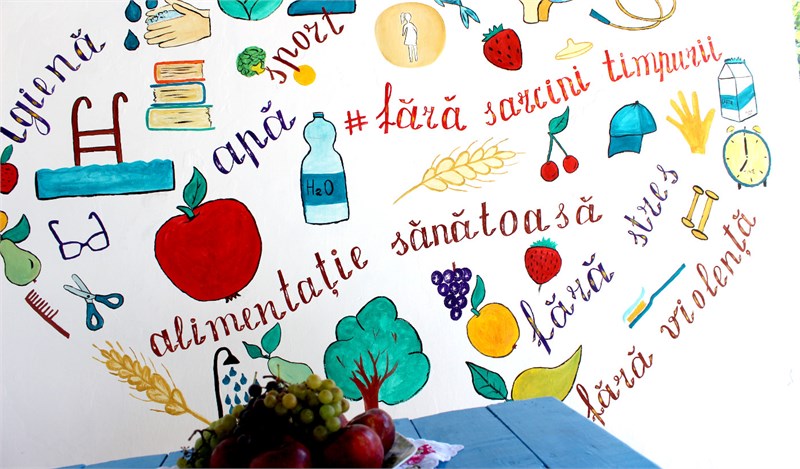 igienă
sport
apă
#fără sarcini timpurii
H₂O
alimentație sănătoasă
fără stres
fără violență